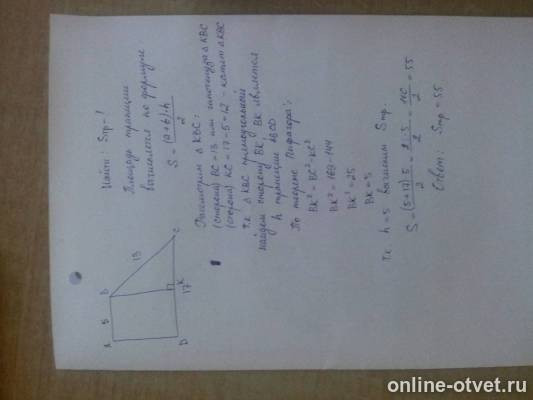 Найти: Sтр-?
Площадь трапеции
вычисляется по формуле
S = (a+b)·h
2
A 5 B 13 C
D 17 K
Рассмотрим Δ KBC:
(сторона) BC = 13 или гипотенуза Δ KBC
(сторона) KC = 17-5=12 - катет Δ KBC
т.к Δ KBC прямоугольный
найдем сторону BK, BK является
h трапеции ABCD
По теореме Пифагора:
BK² = BC² - KC²
BK² = 169 - 144
BK² = 25
BK = 5
т.к h = 5 вычислим Sтр.
S = (5+17)·5 / 2 = 22·5 / 2 = 110 / 2 = 55
Ответ: Sтр = 55
online-otvet.ru